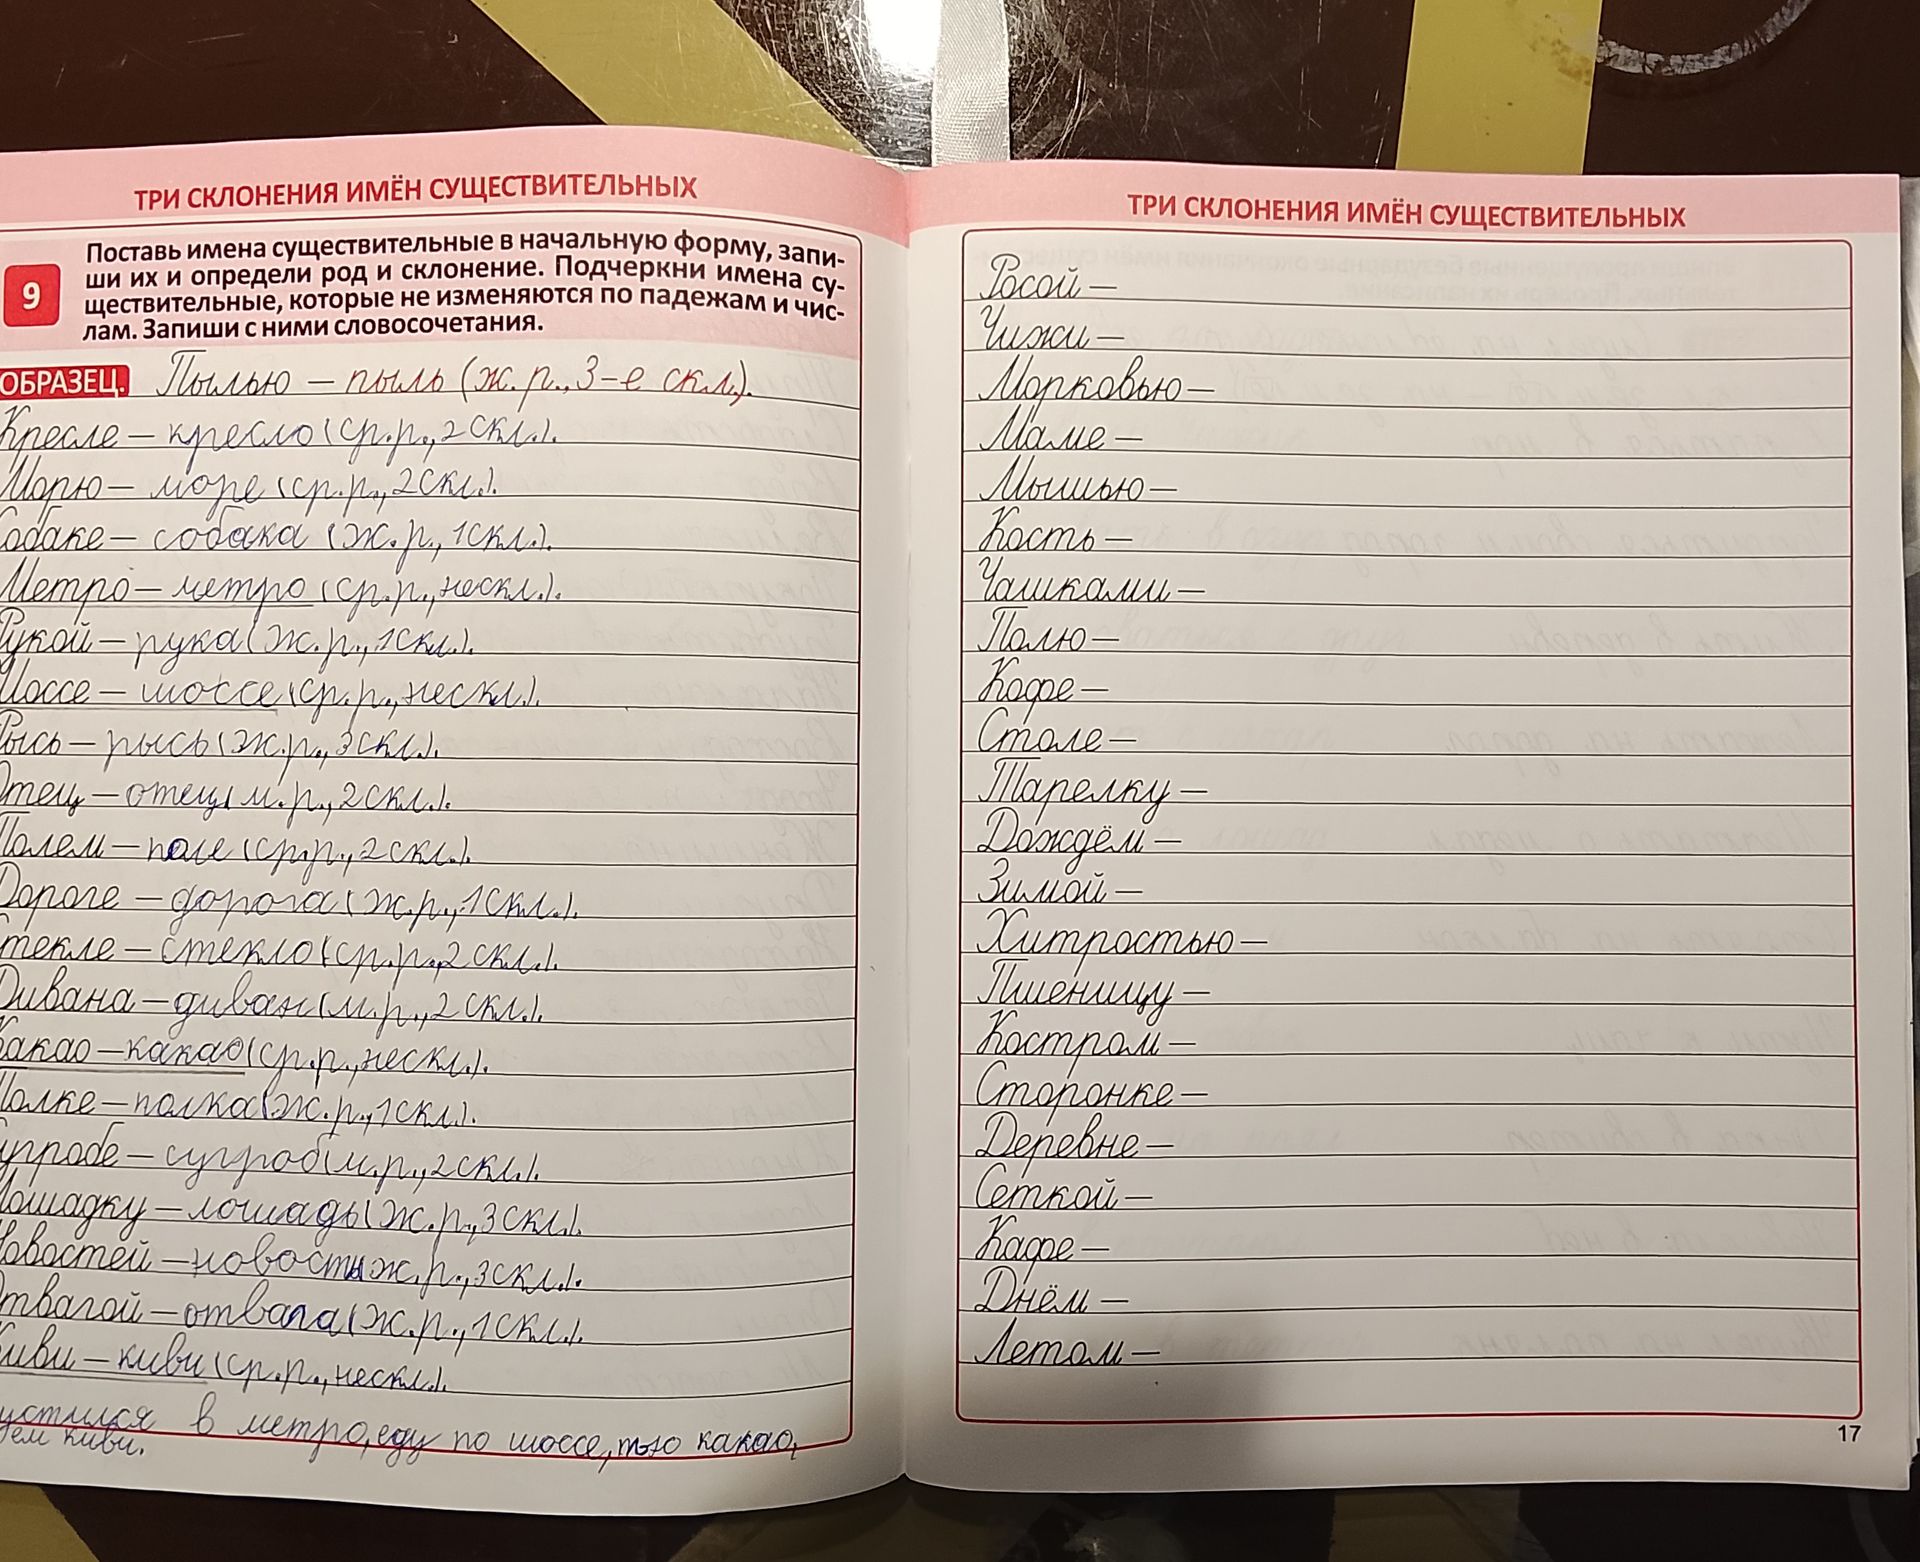 ТРИ СКЛОНЕНИЯ ИМЁН СУЩЕСТВИТЕЛЬНЫХ
9
Поставь имена существительные в начальную форму, запи-
ши их и определи род и склонение. Подчеркни имена су-
ществительные, которые не изменяются по падежам и чис-
лам. Запиши с ними словосочетания.
ОБРАЗЕЦ. Пылью – пыль (ж.р., 3-е скл.).
Кресле – кресло (ср.р., 2 скл.).
Морю – море (ср.р., 2 скл.).
обаке – собака (ж.р., 1 скл.).
Метро – метро (ср.р., нескл.).
Рукой – рука (ж.р., 1 скл.).
Шоссе – шоссе (ср.р., нескл.).
Рысь – рысь (ж.р., 3 скл.).
Отец – отец (м.р., 2 скл.).
Полем – поле (ср.р., 2 скл.).
Дороге – дорога (ж.р., 1 скл.).
текле – стекло (ср.р., 2 скл.).
Дивана – диван (м.р., 2 скл.).
Какао – какао (ср.р., нескл.).
Полке – полка (ж.р., 1 скл.).
угробе – сугроб (м.р., 2 скл.).
Лошадку – лошадь (ж.р., 3 скл.).
Новостей – новость (ж.р., 3 скл.).
Отвагой – отвага (ж.р., 1 скл.).
Киви – киви (ср.р., нескл.).
устился в метро, еду по шоссе, пью какао,
ем киви.
ТРИ СКЛОНЕНИЯ ИМЁН СУЩЕСТВИТЕЛЬНЫХ
Росой –
Чижи –
Морковью –
Маме –
Мышью –
Кость –
Чашками –
Полю –
Кофе –
Столе –
Тарелку –
Дождём –
Зимой –
Хитростью –
Пшеницу –
Костром –
Сторонке –
Деревне –
Сеткой –
Кафе –
Днём –
Летом –
17